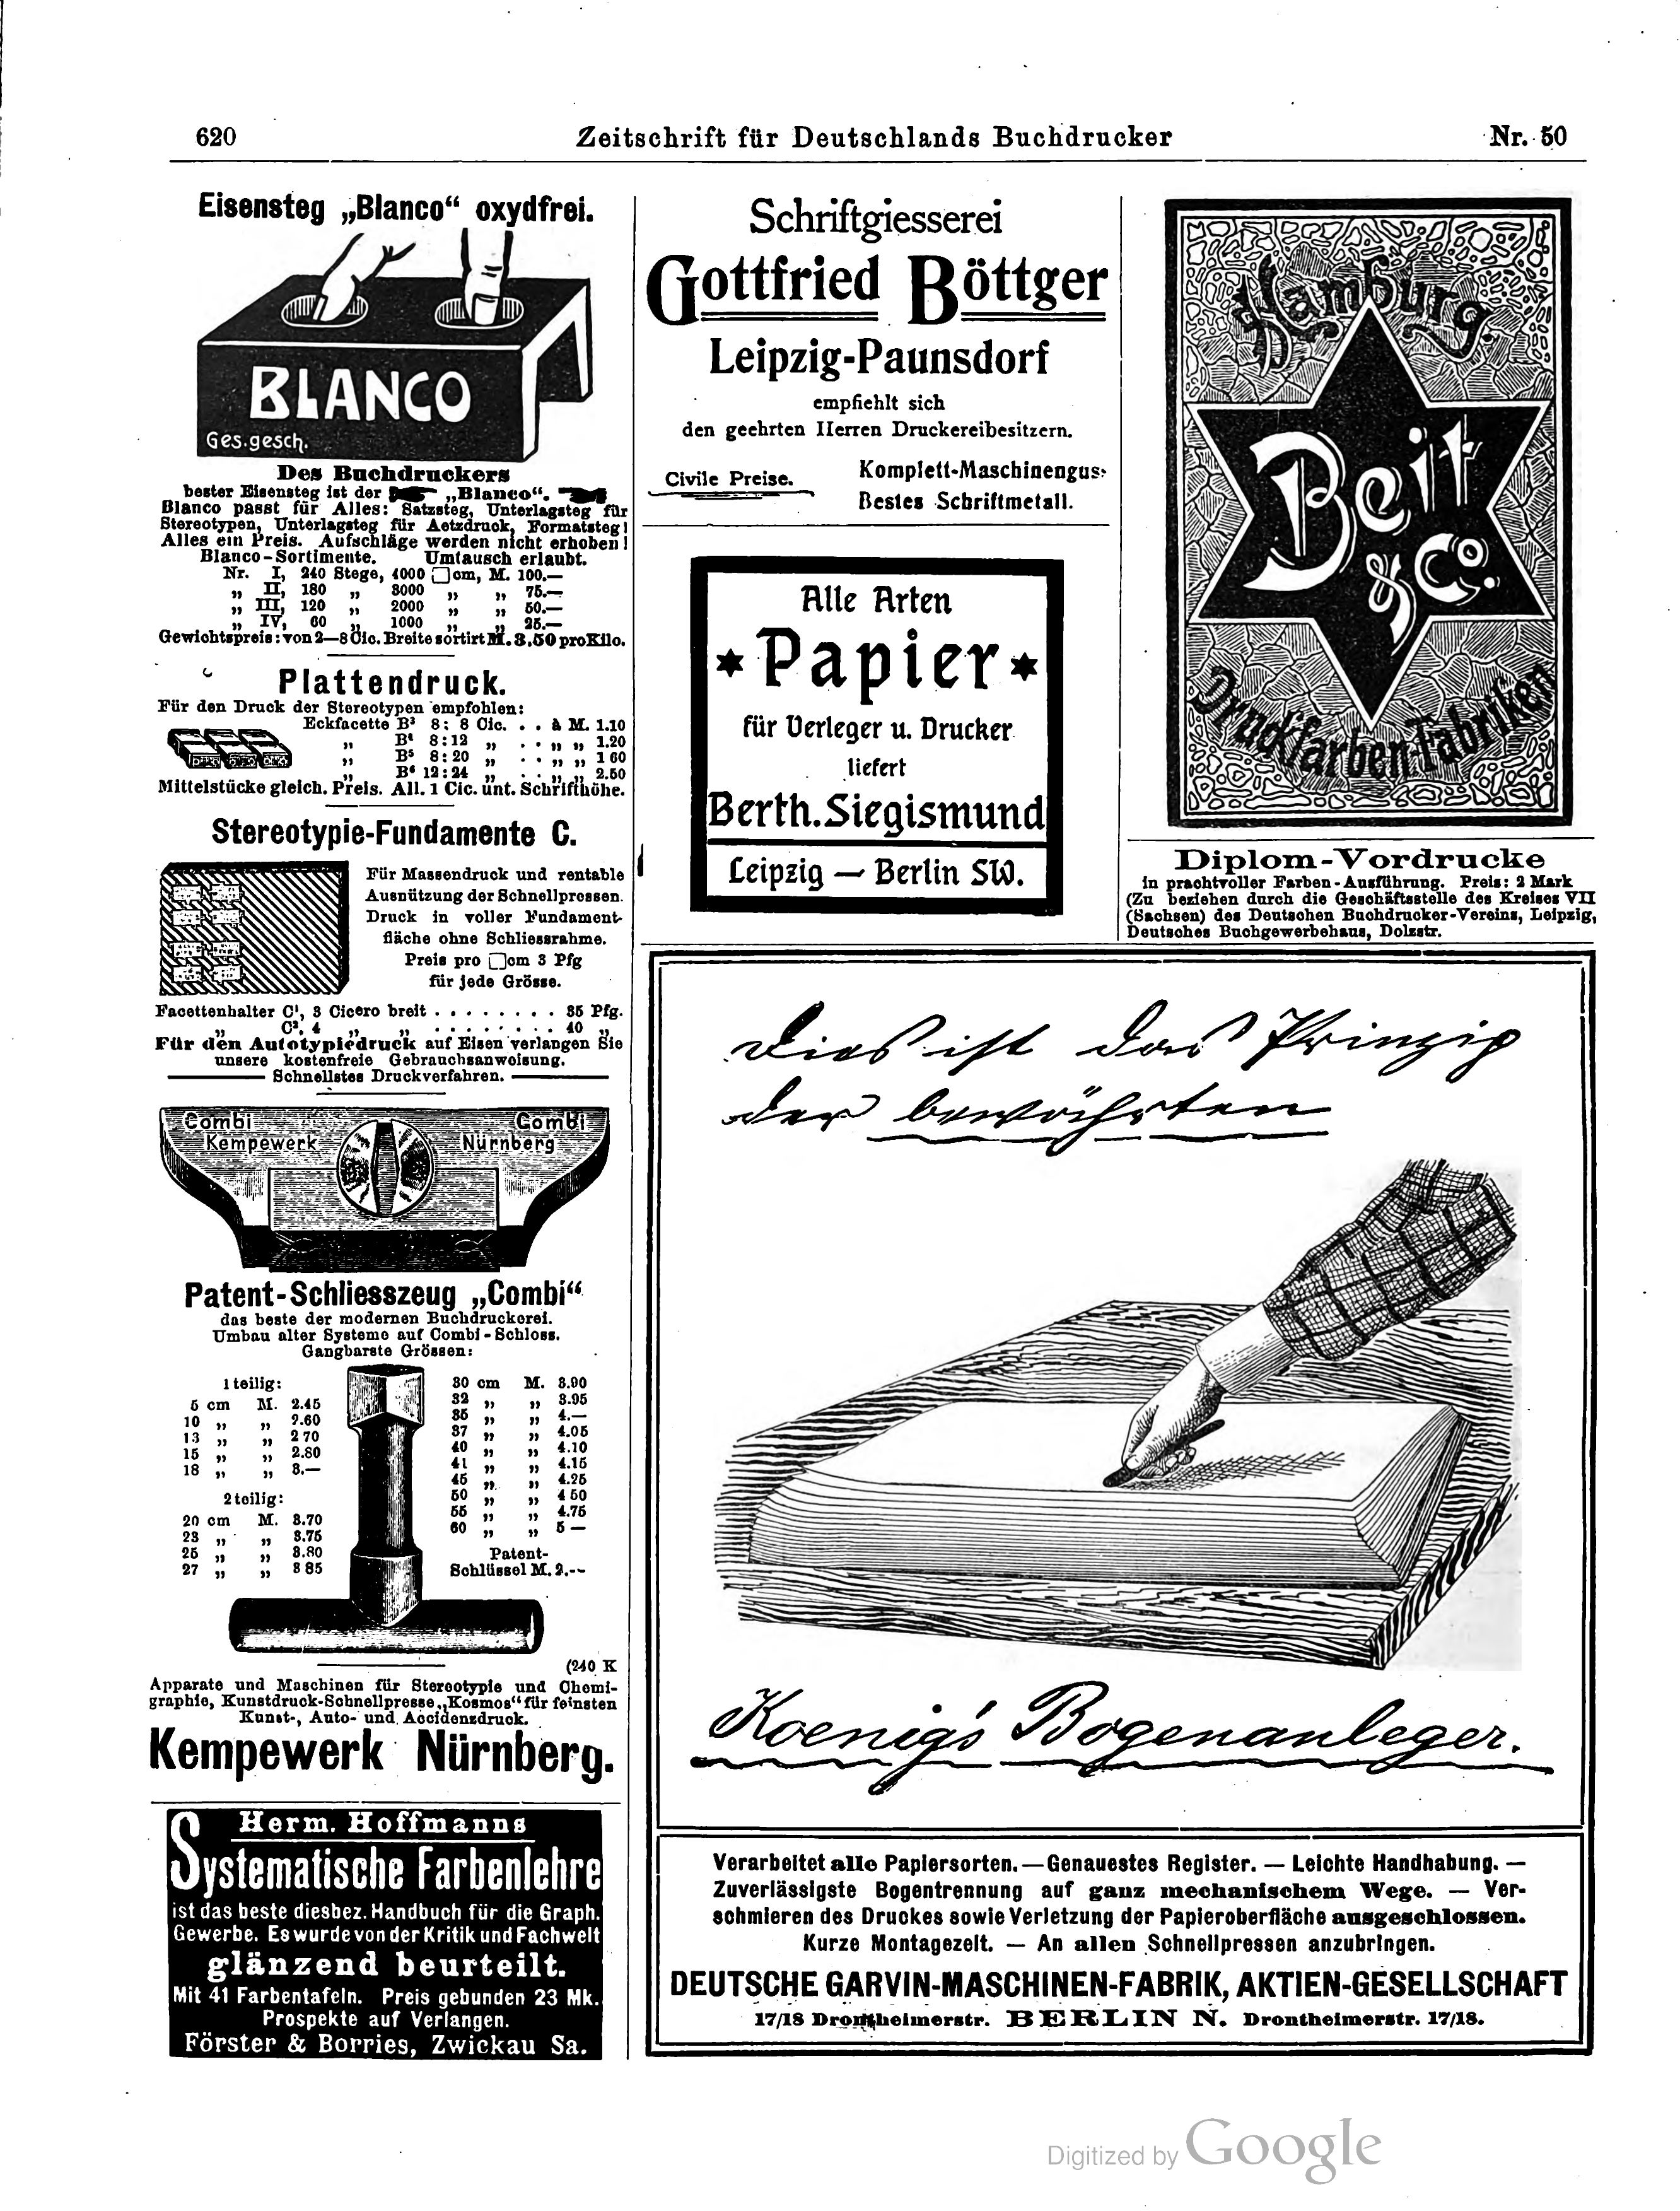 620
Zeitschrift für Deutschlands Buchdrucker
Nr. 50
Eisensteg „Blanco“ oxydfrei.
BLANCO
Ges. gesch.
Des Buchdruckers
bester Eisensteg ist der „Blanco“.
Blanco passt für Alles: Satzsteg, Unterlagsteg für
Stereotypen, Unterlagsteg für Aetzdruck, Formatsteg!
Alles ein Preis. Aufschläge werden nicht erhoben!
Blanco-Sortimente. Umtausch erlaubt.
Nr. I, 240 Stege, 4000 □cm, M. 100.—
„ II, 180 „ 3000 „ „ 75.—
„ III, 120 „ 2000 „ „ 50.—
„ IV, 60 „ 1000 „ „ 25.—
Gewichtspreis: von 2—8 Cic. Breite sortirt M. 3.50 pro Kilo.
Plattendruck.
Für den Druck der Stereotypen empfohlen:
Eckfacette B³ 8: 8 Cic. . . à M. 1.10
„ B⁴ 8:12 „ . . „ „ 1.20
„ B⁵ 8:20 „ . . „ „ 1 60
„ B⁶ 12:24 „ . . „ „ 2.50
Mittelstücke gleich. Preis. All. 1 Cic. unt. Schrifthöhe.
Stereotypie-Fundamente C.
Für Massendruck und rentable
Ausnützung der Schnellpressen.
Druck in voller Fundament-
fläche ohne Schliessrahme.
Preis pro □cm 3 Pfg
für jede Grösse.
Facettenhalter C¹, 3 Cicero breit . . . . . . . . 35 Pfg.
„ C², 4 „ „ . . . . . . . . 40 „
Für den Autotypiedruck auf Eisen verlangen Sie
unsere kostenfreie Gebrauchsanweisung.
Schnellstes Druckverfahren.
Combi Combi
Kempewerk Nürnberg
Patent-Schliesszeug „Combi“
das beste der modernen Buchdruckerei.
Umbau alter Systeme auf Combi-Schloss.
Gangbarste Grössen:
1 teilig:
5 cm M. 2.45
10 „ „ 2.60
13 „ „ 2 70
15 „ „ 2.80
18 „ „ 3.—
2 teilig:
20 cm M. 3.70
23 „ „ 3.75
25 „ „ 3.80
27 „ „ 3 85
30 cm M. 3.90
32 „ „ 3.95
35 „ „ 4.—
37 „ „ 4.05
40 „ „ 4.10
41 „ „ 4.15
45 „ „ 4.25
50 „ „ 4 50
55 „ „ 4.75
60 „ „ 5 —
Patent-
Schlüssel M. 2.--
(240 K
Apparate und Maschinen für Stereotypie und Chemi-
graphie, Kunstdruck-Schnellpresse „Kosmos“ für feinsten
Kunst-, Auto- und Accidenzdruck.
Kempewerk Nürnberg.
Herm. Hoffmanns
Systematische Farbenlehre
ist das beste diesbez. Handbuch für die Graph.
Gewerbe. Es wurde von der Kritik und Fachwelt
glänzend beurteilt.
Mit 41 Farbentafeln. Preis gebunden 23 Mk.
Prospekte auf Verlangen.
Förster & Borries, Zwickau Sa.
Schriftgiesserei
Gottfried Böttger
Leipzig-Paunsdorf
empfiehlt sich
den geehrten Herren Druckereibesitzern.
Civile Preise.
Komplett-Maschinenguss
Bestes Schriftmetall.
Alle Arten
* Papier *
für Verleger u. Drucker
liefert
Berth. Siegismund
Leipzig — Berlin SW.
Hamburg
Beit
& Co.
Druckfarben-Fabriken
Diplom-Vordrucke
in prachtvoller Farben-Ausführung. Preis: 2 Mark
(Zu beziehen durch die Geschäftsstelle des Kreises VII
(Sachsen) des Deutschen Buchdrucker-Vereins, Leipzig,
Deutsches Buchgewerbehaus, Dolzstr.
Dies ist das Prinzip
der bewährten
Koenig's Bogenanleger.
Verarbeitet alle Papiersorten. — Genauestes Register. — Leichte Handhabung. —
Zuverlässigste Bogentrennung auf ganz mechanischem Wege. — Ver-
schmieren des Druckes sowie Verletzung der Papieroberfläche ausgeschlossen.
Kurze Montagezeit. — An allen Schnellpressen anzubringen.
DEUTSCHE GARVIN-MASCHINEN-FABRIK, AKTIEN-GESELLSCHAFT
17/18 Drontheimerstr. BERLIN N. Drontheimerstr. 17/18.
Digitized by Google